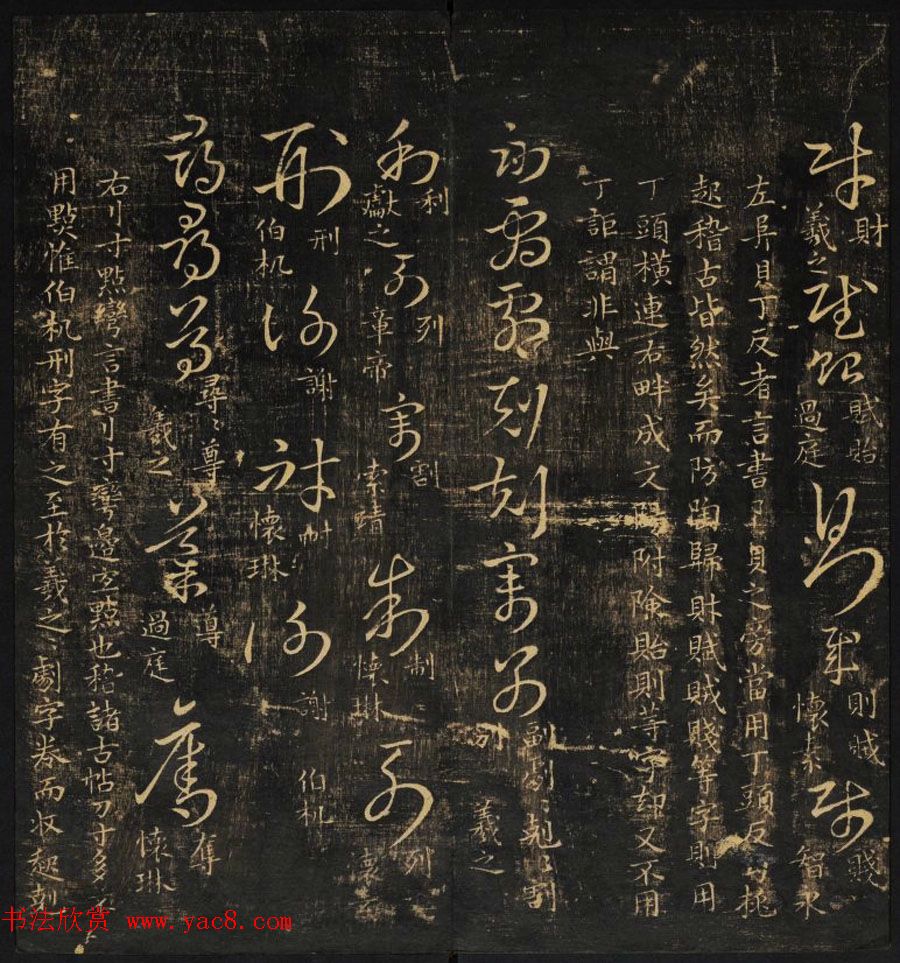 財 羲之 賦貽 過庭 則賊 懷素 賤 智永
左阜貝丁反者言書阝貝之旁當用丁頭反挑
起稽古皆然矣而防陶歸財賦賊賤等字則用
丁頭橫連右畔成文附險貽則等字却又不用
丁詎謂非與
副劇〻剋〻割別 羲之
利 獻之 列 章帝 割 索靖 制 懷琳 列 懷素
刑 伯机 謝 耐 懷琳 謝 伯机
尋〻尊 羲之 導 過庭 奪 懷琳
右刂寸點彎言書刂寸彎邊空點也稽諸古帖刀寸多不
用點惟伯机刑字有之至於羲之劇字卷而收趯刺
书法欣赏 www.yac8.com